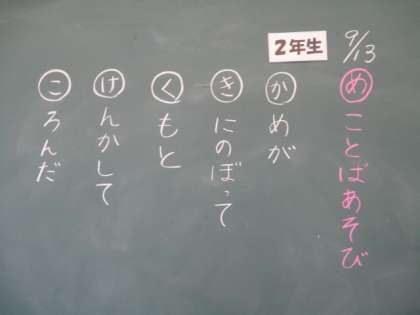 9/13
2年生
めことばあそび
かめが
きにのぼって
くもと
けんかして
ころんだ